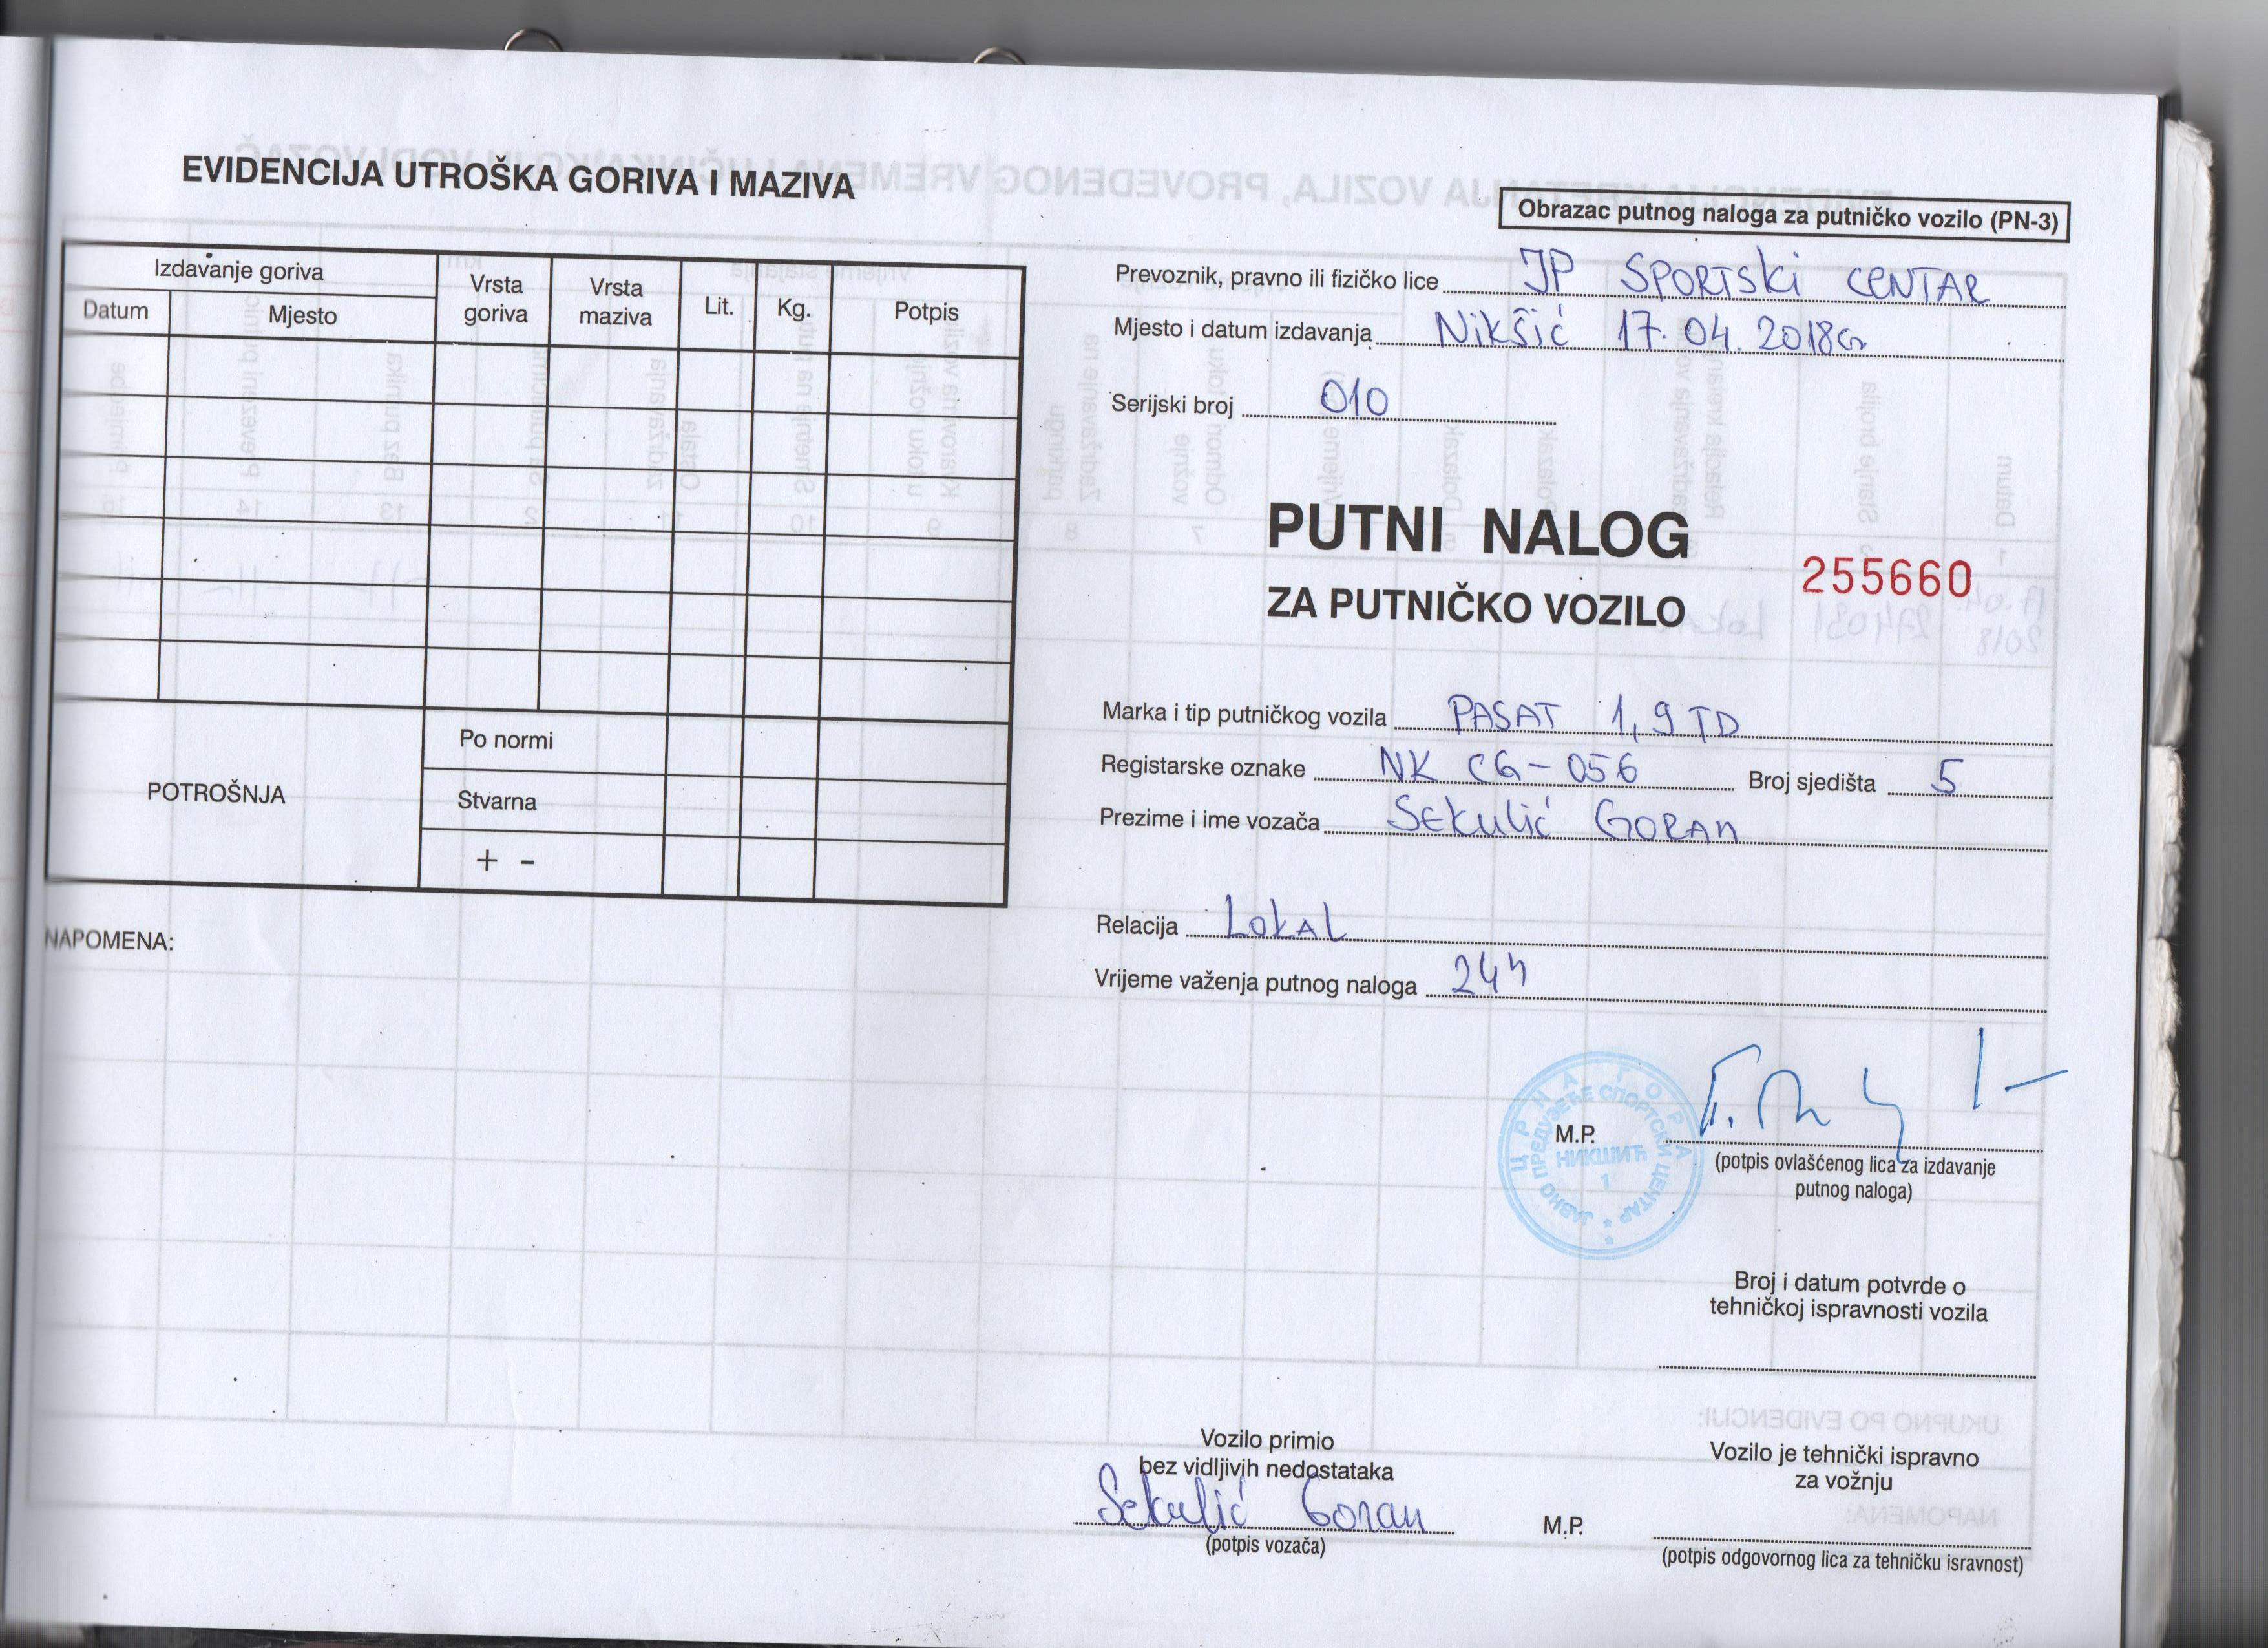 EVIDENCIJA UTROŠKA GORIVA I MAZIVA
Izdavanje goriva
Datum
Mjesto
Vrsta goriva
Vrsta maziva
Lit.
Kg.
Potpis
POTROŠNJA
Po normi
Stvarna
+ -
NAPOMENA:
Obrazac putnog naloga za putničko vozilo (PN-3)
Prevoznik, pravno ili fizičko lice JP SPORTSki CENTAR
Mjesto i datum izdavanja Nikšić 17.04.2018
Serijski broj 010
PUTNI NALOG
255660
ZA PUTNIČKO VOZILO
Marka i tip putničkog vozila PASAT 1,9 TD
Registarske oznake NK CG-056 Broj sjedišta 5
Prezime i ime vozača SEkulić GORAN
Relacija LOKAL
Vrijeme važenja putnog naloga 24h
ЦРНА ГОРА
ЈАВНО ПРЕДУЗЕЋЕ СПОРТСКИ ЦЕНТАР
НИКШИЋ
1
M.P.
(potpis ovlašćenog lica za izdavanje
putnog naloga)
Broj i datum potvrde o
tehničkoj ispravnosti vozila
Vozilo primio
bez vidljivih nedostataka
Sekulić Goran
(potpis vozača)
Vozilo je tehnički ispravno
za vožnju
M.P.
(potpis odgovornog lica za tehničku isravnost)